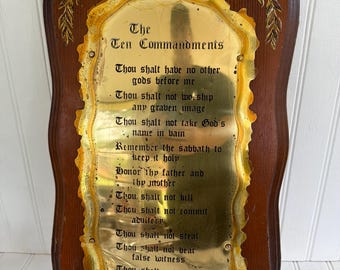 The
Ten Commandments
Thou shalt have no other
gods before me
Thou shalt not worship
any graven image
Thou shalt not take God's
name in vain
Remember the sabbath to
keep it holy
Honor thy father and
thy mother
Thou shalt not kill
Thou shalt not commit
adultery
Thou shalt not steal
Thou shalt not bear
false witness
Thou shalt